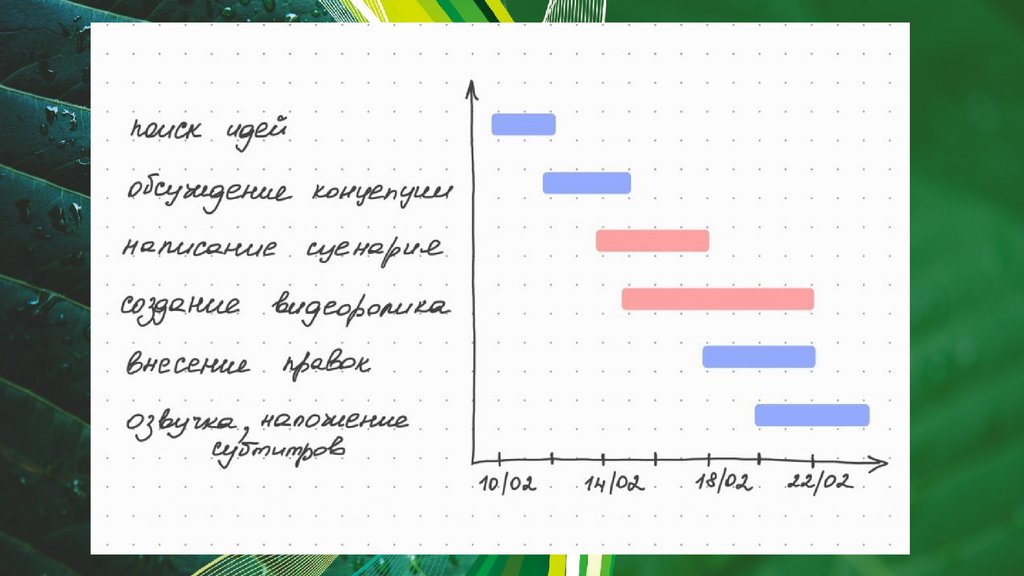 поиск идей
обсуждение концепции
написание сценария
создание видеоролика
внесение правок
озвучка, наложение
субтитров
10/02 14/02 18/02 22/02